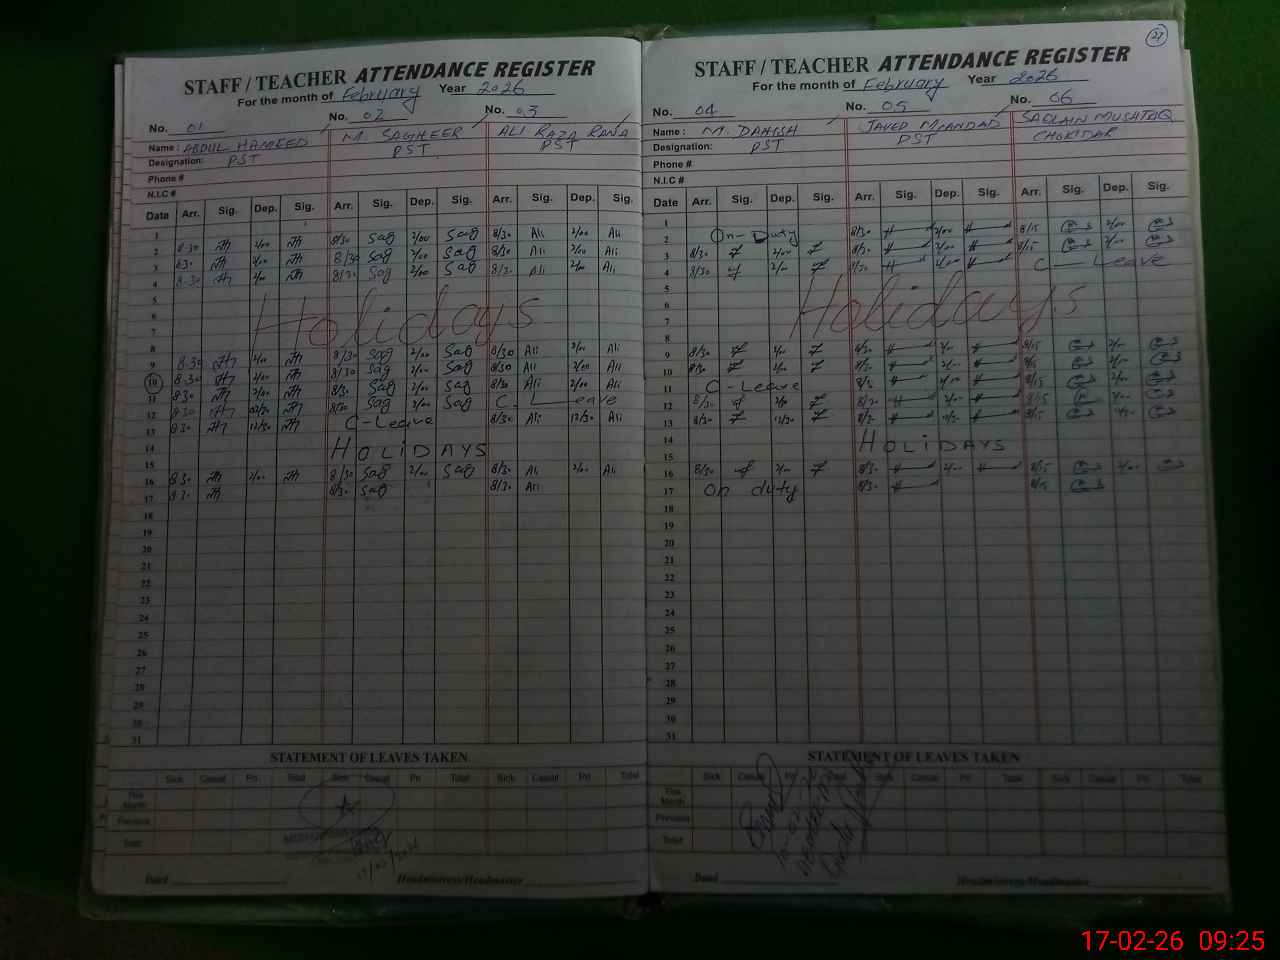 27
STAFF / TEACHER ATTENDANCE REGISTER
For the month of February Year 2026
No. 01 No. 02 No. 03
Name : ABDUL HAMEED M. SAGHEER ALI RAZA RANA
Designation: PST PST PST
Phone #
N.I.C #
Date Arr. Sig. Dep. Sig. Arr. Sig. Dep. Sig. Arr. Sig. Dep. Sig.
1
2 8:30 2/00 8/30 Sag 2/00 Sag 8/30 Ali 2/00 Ali
3 8:30 2/00 8/30 Sag 2/00 Sag 8/30 Ali 2/00 Ali
4 8:30 2/00 8/30 Sag 2/00 Sag 8/30 Ali 2/00 Ali
5
6 Holidays
7
8
9 8:30 2/00 8/30 Sag 2/00 Sag 8/30 Ali 2/00 Ali
10 8:30 2/00 8/30 Sag 2/00 Sag 8/30 Ali 2/00 Ali
11 8:30 2/00 8/30 Sag 2/00 Sag 8/30 Ali 2/00 Ali
12 8:30 8/30 Sag 2/00 Sag C-Leave
13 8:30 12/30 C-Leave 8/30 Ali 12/30 Ali
14 HOLIDAYS
15
16 8:30 2/00 8/30 Sag 2/00 Sag 8/30 Ali 2/00 Ali
17 8:30 8/30 Sag 8/30 Ali
18
19
20
21
22
23
24
25
26
27
28
29
30
31
STATEMENT OF LEAVES TAKEN
Sick Casual Pri Total Sick Casual Pri Total Sick Casual Pri Total
This Month
Previous
Total
Dated Headmistress/Headmaster
STAFF / TEACHER ATTENDANCE REGISTER
For the month of February Year 2026
No. 04 No. 05 No. 06
Name : M. DANISH JAVED MIANDAD SAQLAIN MUSHTAQ
Designation: PST PST CHOKIDAR
Phone #
N.I.C #
Date Arr. Sig. Dep. Sig. Arr. Sig. Dep. Sig. Arr. Sig. Dep. Sig.
1
2 On-Duty 8/30 2/00 8/15 2/00
3 8/30 2/00 8/30 2/00 8/15 2/00
4 8/30 2/00 8/30 2/00 C-Leave
5
6 Holidays
7
8
9 8/30 2/00 8/30 2/00 8/15 2/00
10 8/30 2/00 8/30 2/00 8/15 2/00
11 C-Leave 8/30 2/00 8/15 2/00
12 8/30 2/00 8/30 2/00 8/15 2/00
13 8/30 12/30 8/30 12/30 8/15 12/30
14 HOLIDAYS
15
16 8/30 2/00 8/30 2/00 8/15 2/00
17 On duty 8/30 8/15
18
19
20
21
22
23
24
25
26
27
28
29
30
31
STATEMENT OF LEAVES TAKEN
Sick Casual Pri Total Sick Casual Pri Total Sick Casual Pri Total
This Month
Previous
Total
Dated Headmistress/Headmaster
17-02-26 09:25